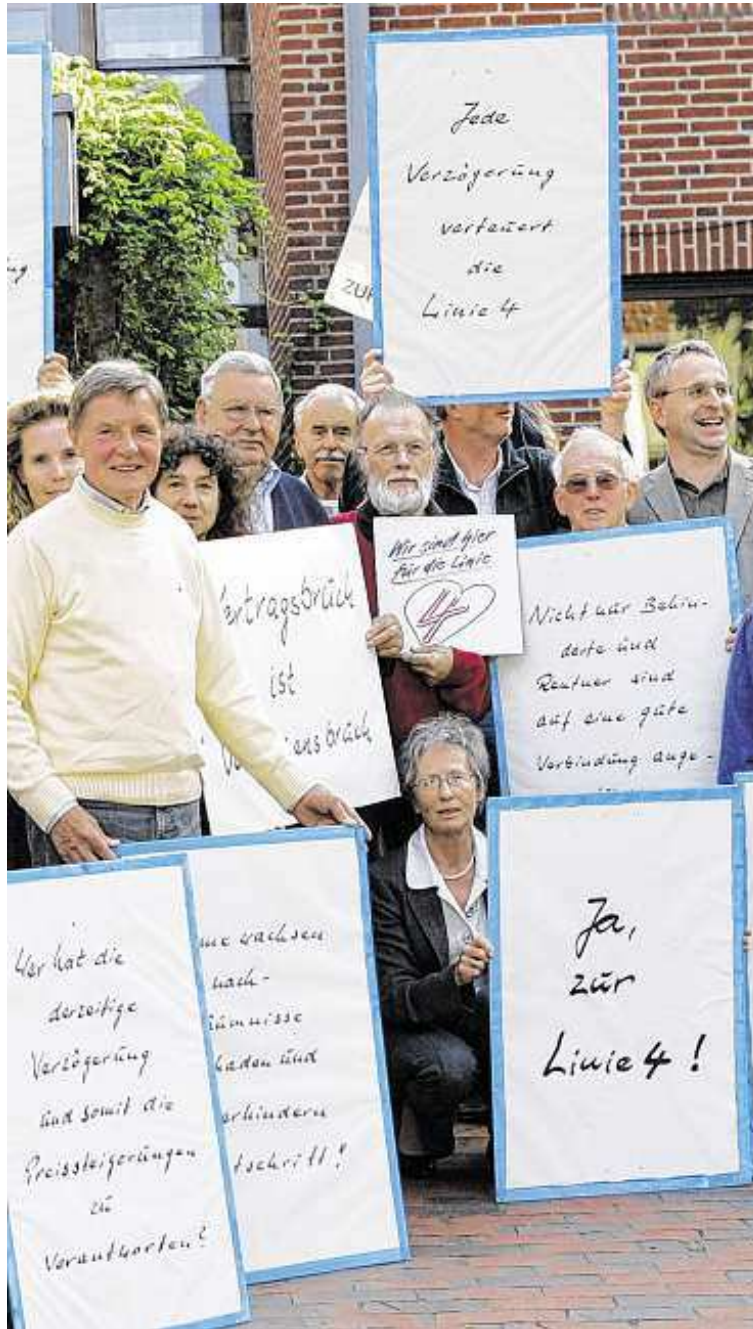 Jede
Verzögerung
verteuert
die
Linie 4
ZUR
Wir sind hier
für die Linie
4
Vertragsbruch
ist
Nicht nur Behin-
derte und
Rentner sind
auf eine gute
Verbindung ange-
Wer hat die
derzeitige
Verzögerung
und somit die
Preissteigerungen
zu
verantworten?
wachsen
nach-
und
Ja,
zur
Linie 4!